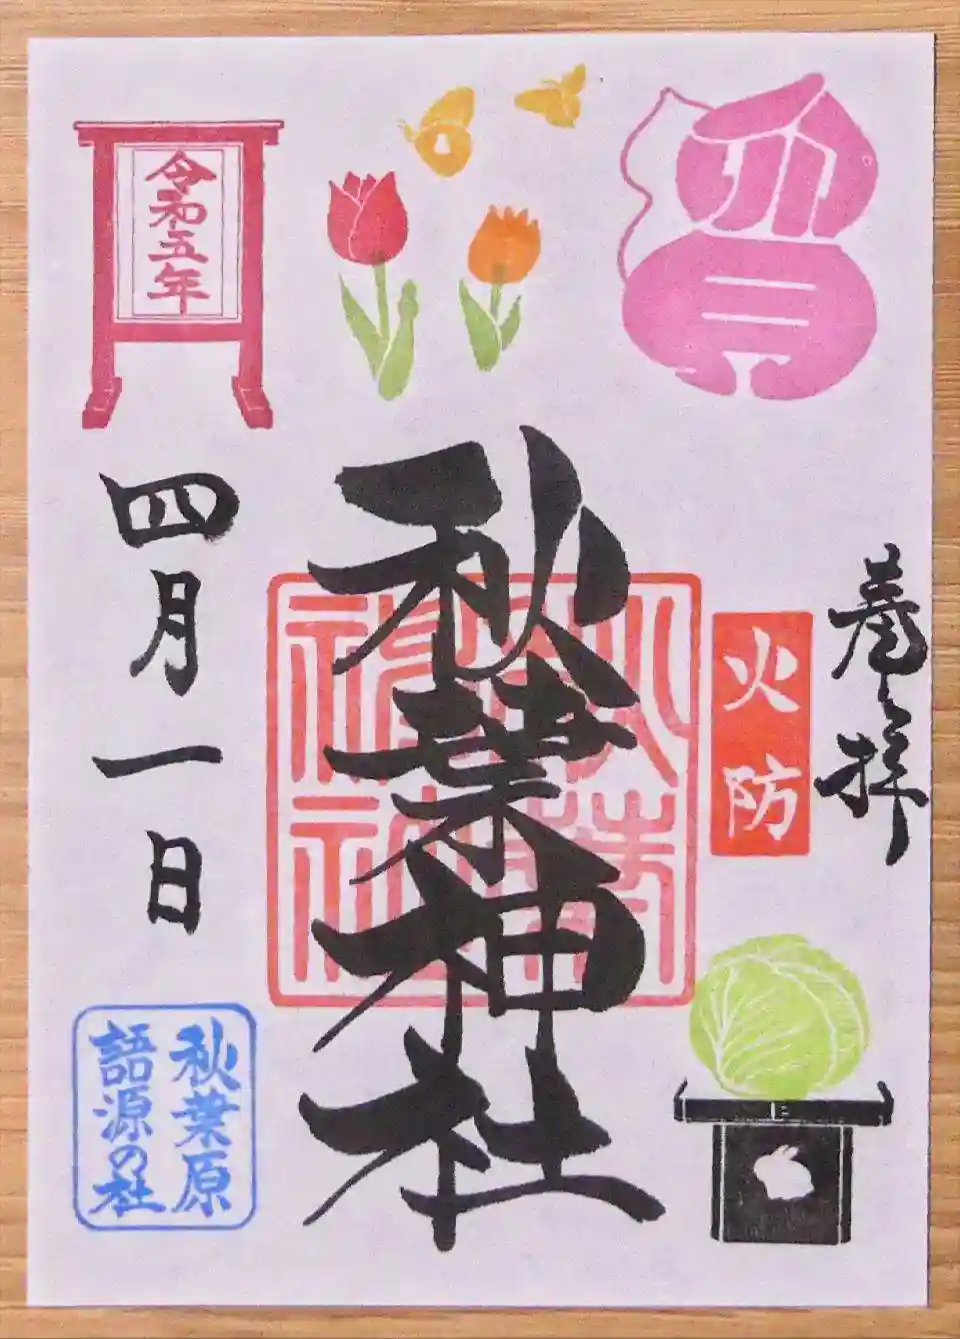 奉拝
火防
秋葉神社
秋葉神社
令和五年
四月一日
秋葉原
語源の社